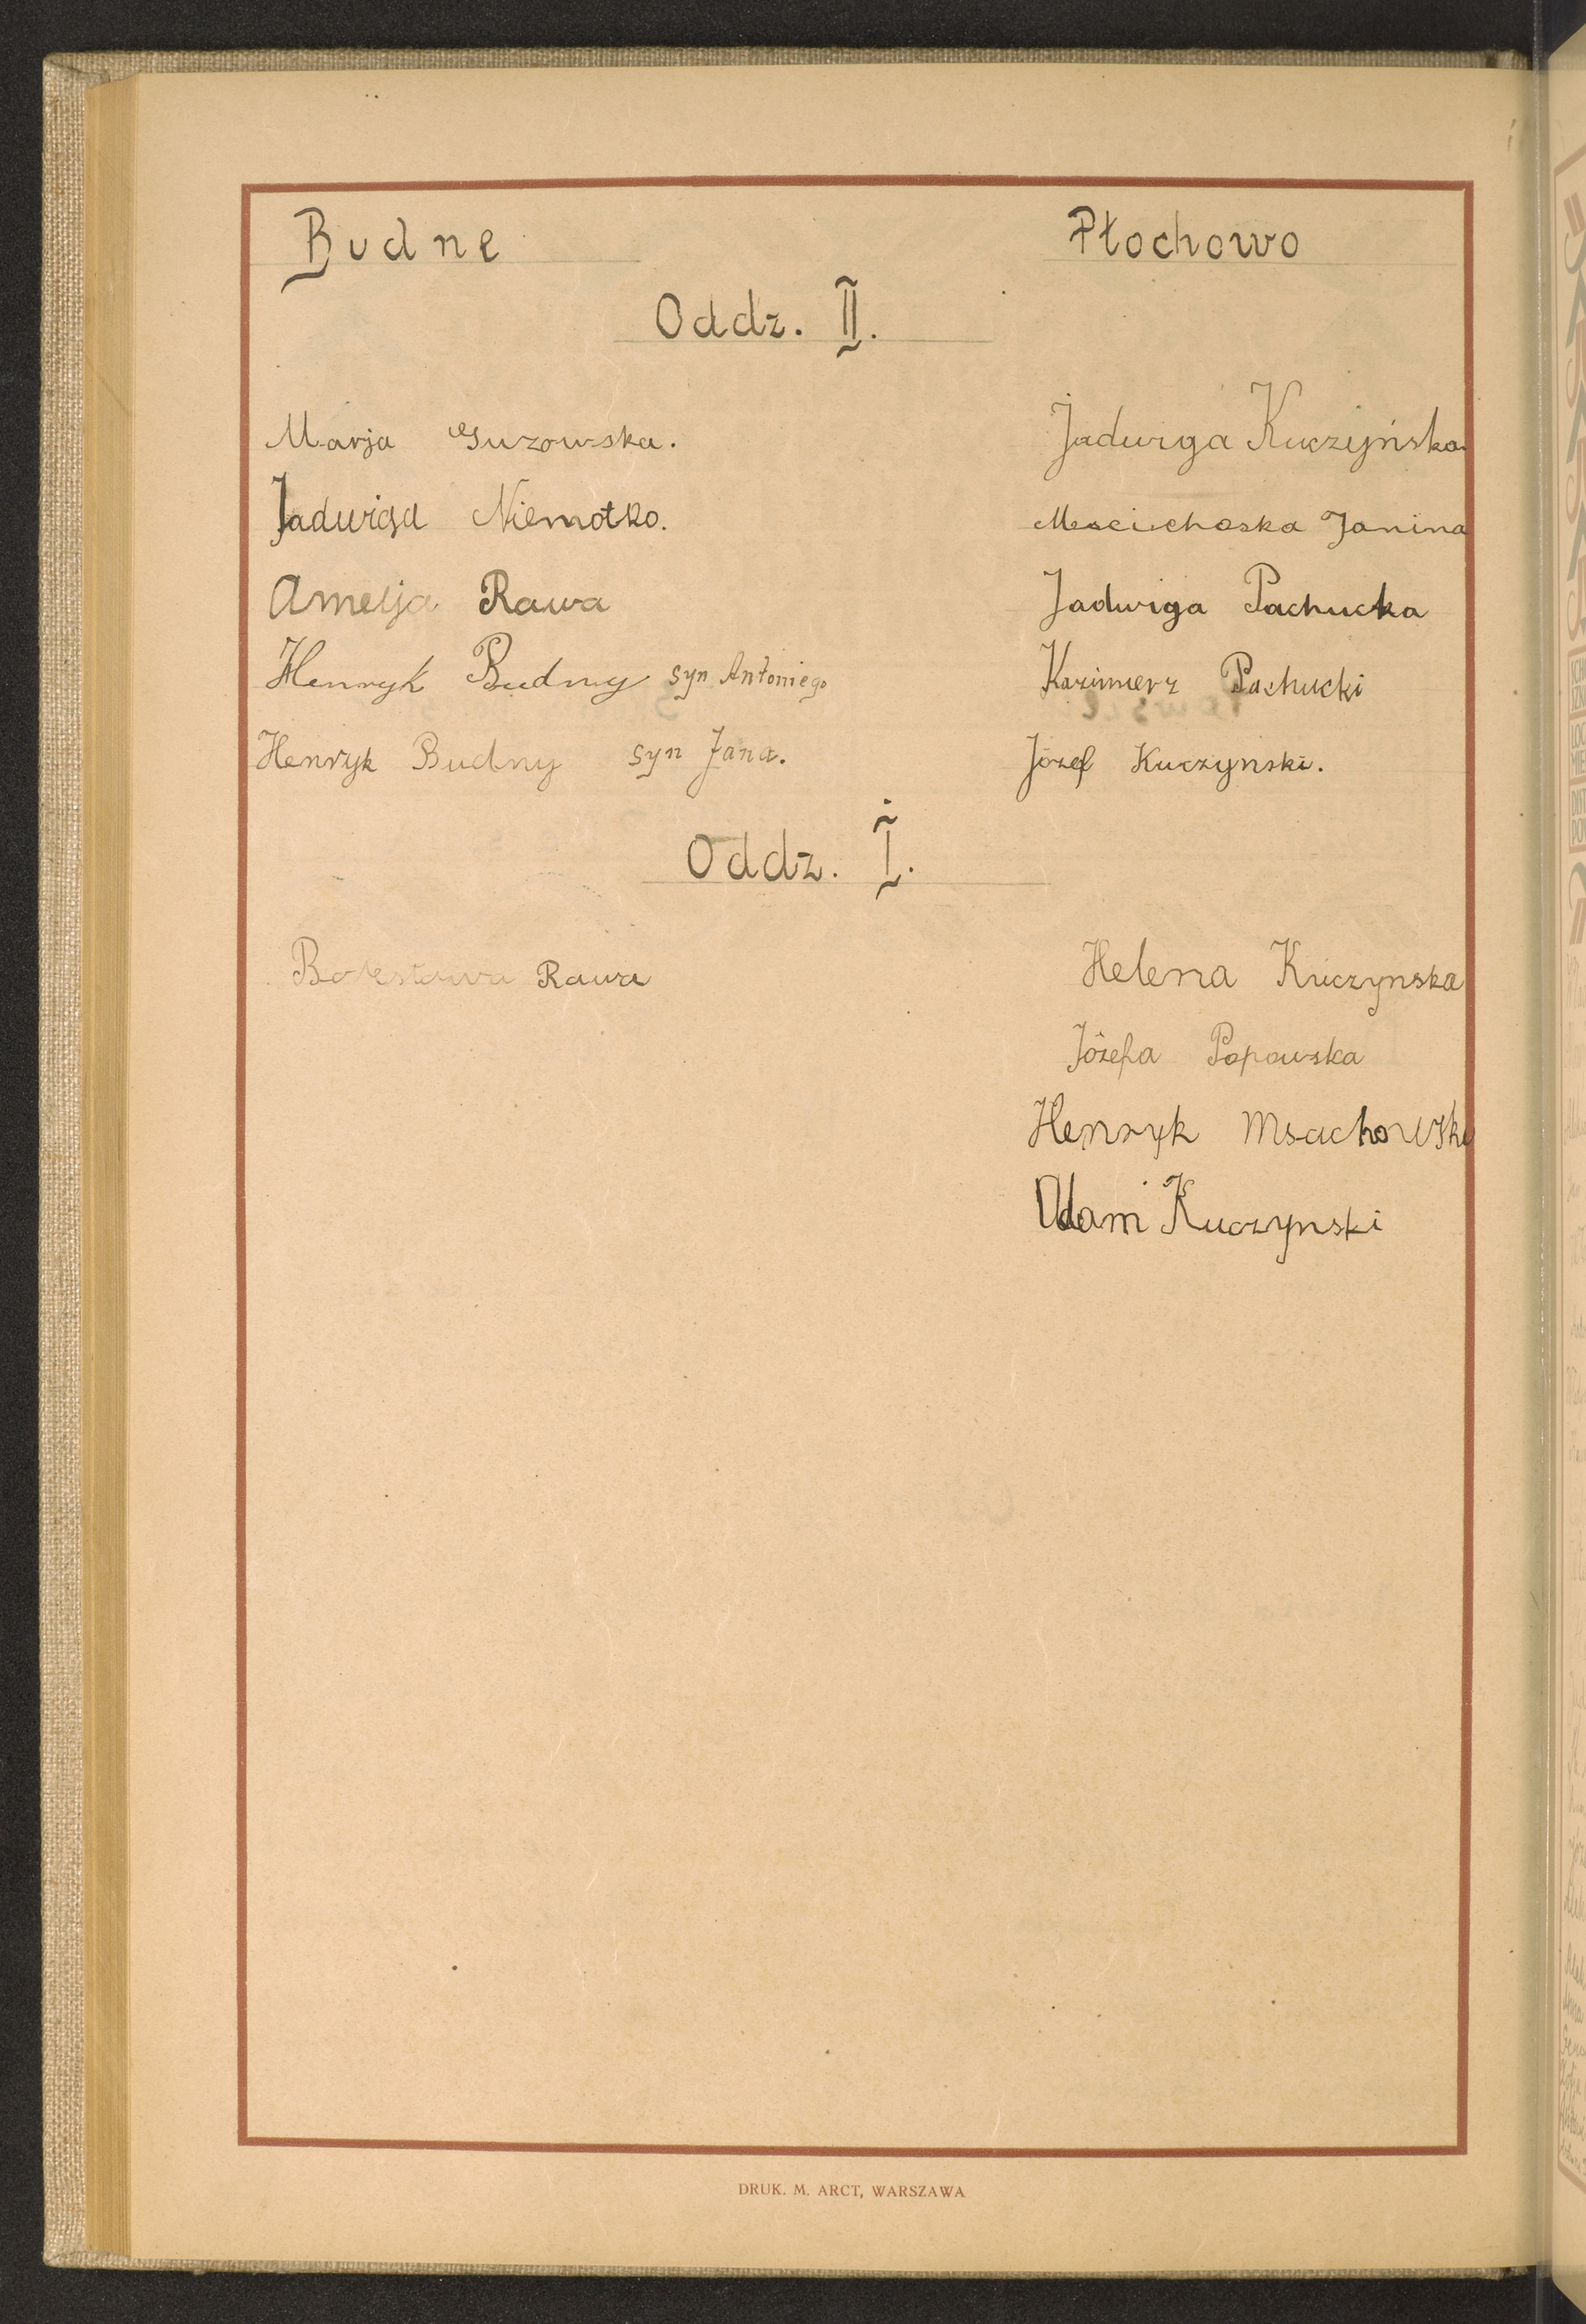 Budne Płochowo
Oddz. II.
Marja Guzowska. Jadwiga Kuczyńska
Jadwiga Niemotko. Janina
Amelja Rawa Jadwiga Pachucka
Henryk Budny syn Antoniego Kazimierz Pachucki
Henryk Budny syn Jana. Józef Kuczynski.
Oddz. I.
Bolesława Rawa Helena Kuczynska
Józefa Popowska
Henryk
Adam Kuczynski
DRUK. M. ARCT, WARSZAWA